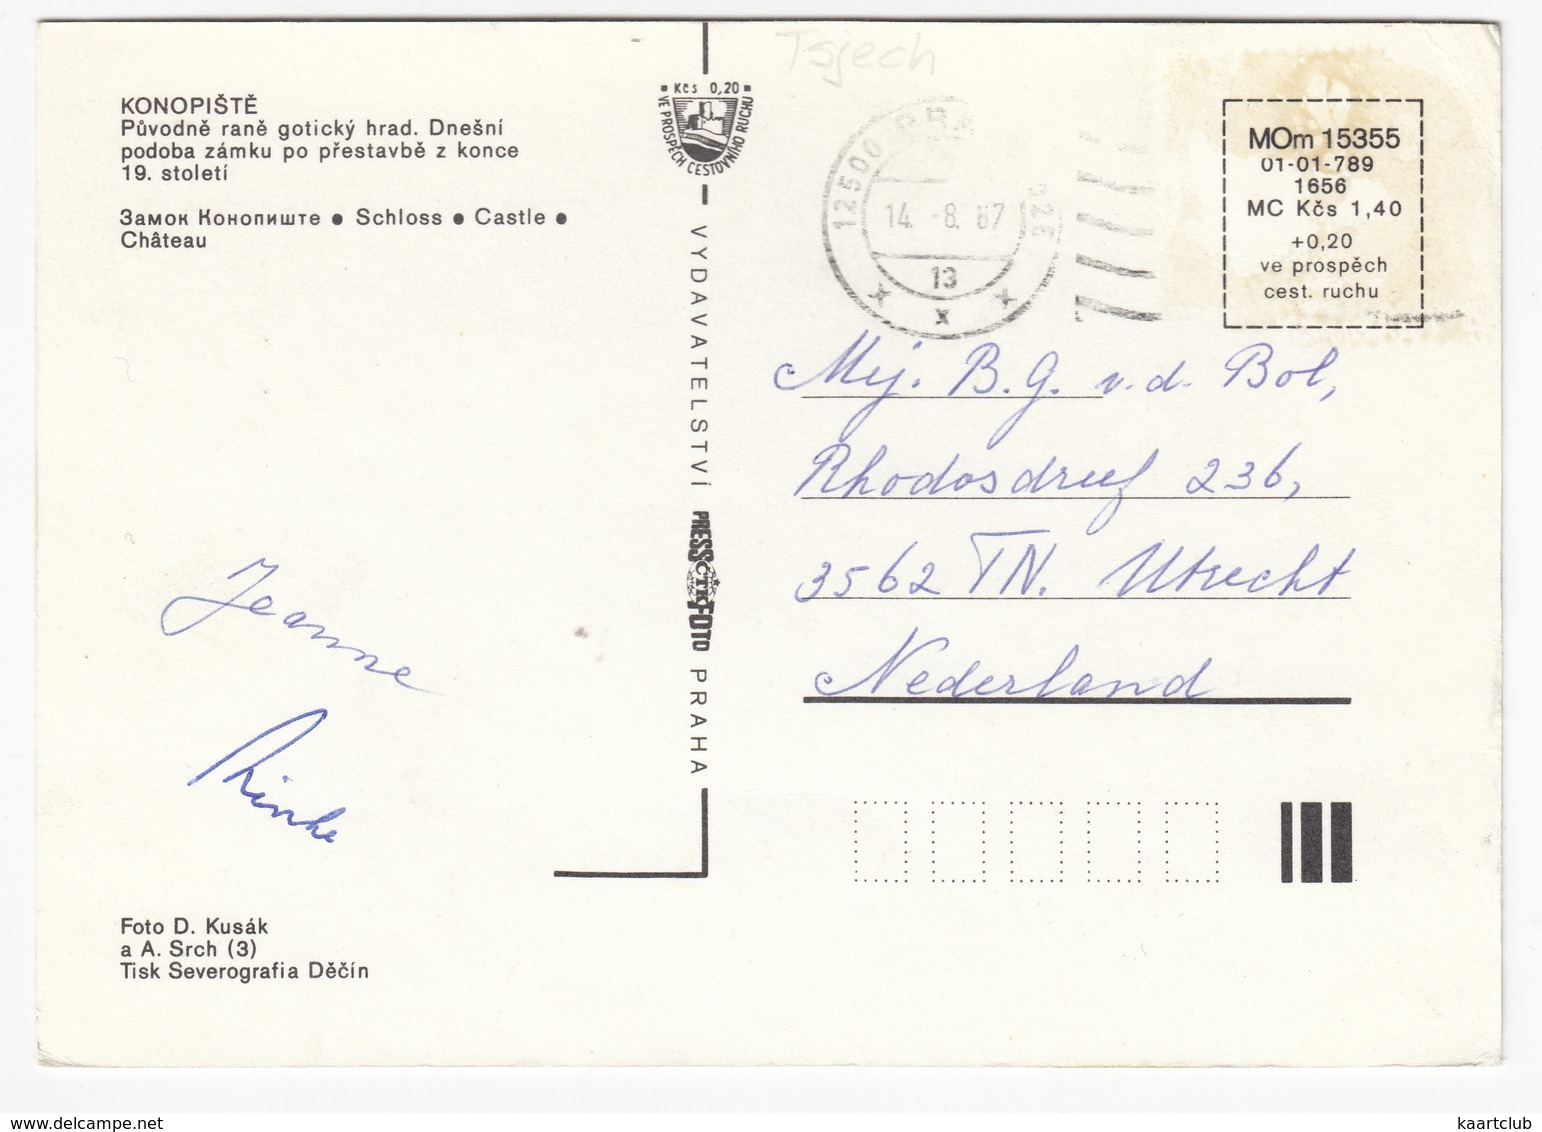 KONOPIŠTĚ
Původně raně gotický hrad. Dnešní
podoba zámku po přestavbě z konce
19. století
Замок Конопиште ● Schloss ● Castle ●
Château
Jeanne
Rinke
Foto D. Kusák
a A. Srch (3)
Tisk Severografia Děčín
Kčs 0,20
VE PROSPĚCH CESTOVNÍHO RUCHU
VYDAVATELSTVÍ PRESSFOTO PRAHA
ČTK
Tsjech
12500 PRA
14. -8. 87
13
x x x
MOm 15355
01-01-789
1656
MC Kčs 1,40
+0,20
ve prospěch
cest. ruchu
Mej. B.G. v.d. Bol,
Rhodosdreef 236,
3562 TN. Utrecht
Nederland
kaartclub